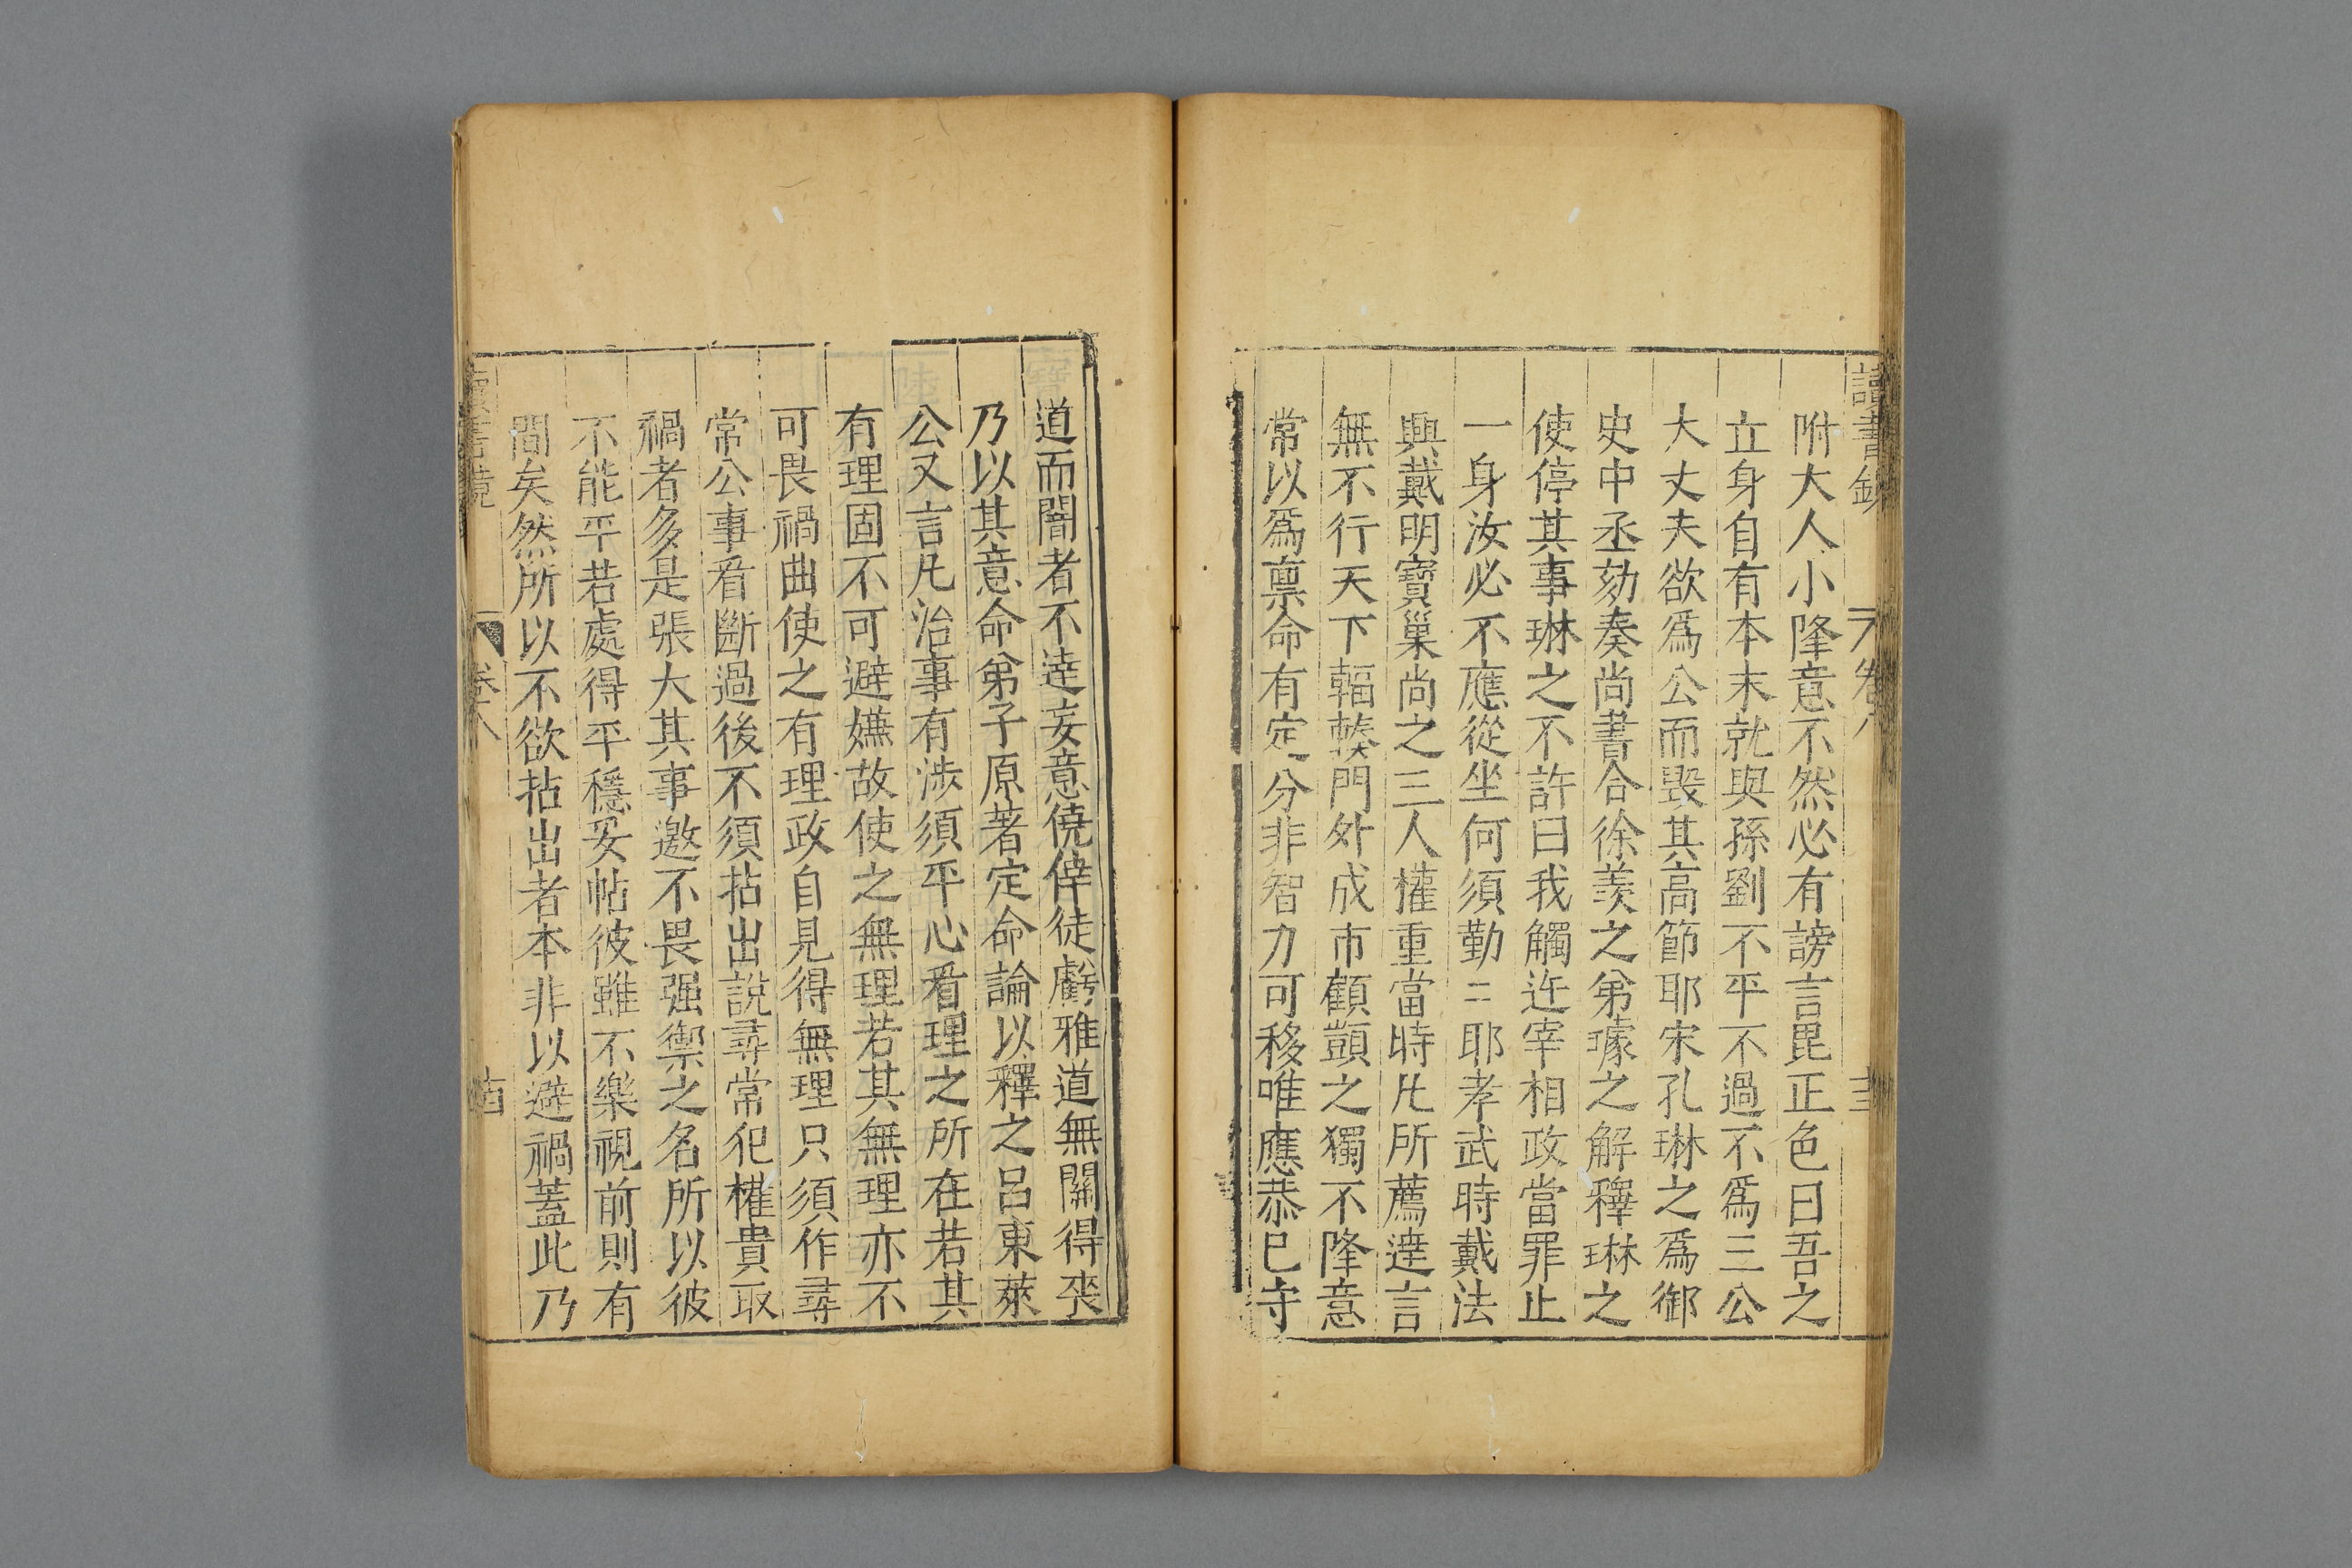 讀書鏡 卷八 十三
附大人小降意不然必有謗言毘正色曰吾之
立身自有本末就與孫劉不平不過不爲三公
大丈夫欲爲公而毀其高節耶宋孔琳之爲御
史中丞劾奏尚書令徐羨之弟璩之解釋琳之
使停其事琳之不許曰我觸迕宰相政當罪止
一身汝必不應從坐何須勤〻耶孝武時戴法
興戴明寶巢尚之三人權重當時凡所薦達言
無不行天下輻輳門外成市顧顗之獨不降意
常以爲禀命有定分非智力可移唯應恭己守
道而闇者不達妄意僥倖徒虧雅道無關得喪
乃以其意命弟子原著定命論以釋之呂東萊
公又言凡治事有涉須平心看理之所在若其
有理固不可避嫌故使之無理若其無理亦不
可畏禍曲使之有理政自見得無理只須作尋
常公事看斷過後不須拈出說尋常犯權貴取
禍者多是張大其事邀不畏强禦之名所以彼
不能平若處得平穩妥帖彼雖不樂視前則有
間矣然所以不欲拈出者本非以避禍蓋此乃
讀書鏡 卷八